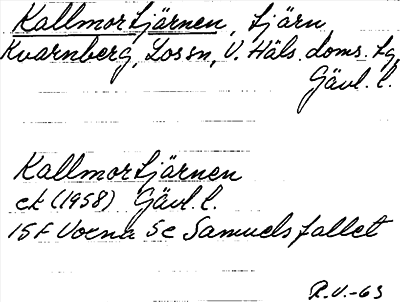 Kallmortjärnen, tjärn
Kvarnberg, Los sn, V. Häls. doms. tg,
Gävl. l.
Kallmortjärnen
ek (1958) Gävl. l.
15F Voxna 5c Samuelsfallet
R.V.-63